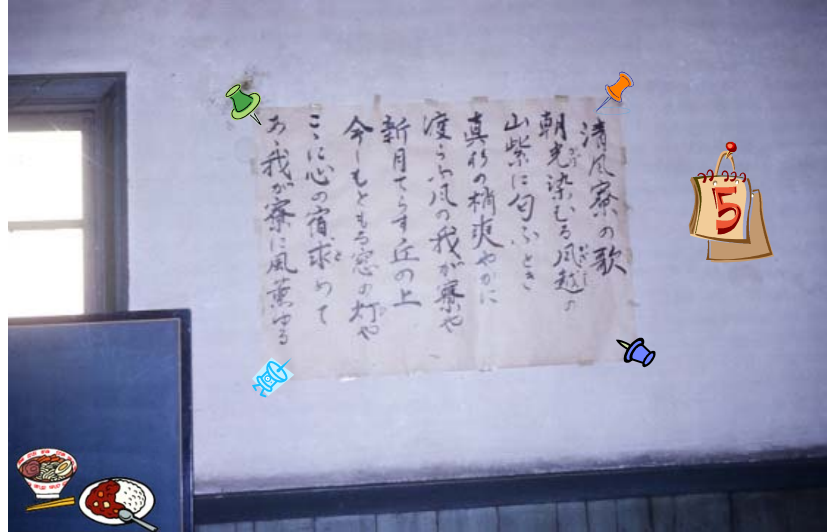 清風寮の歌
朝光染むる風越の
山紫に匂ふとき
真杉の梢爽やかに
渡らふ風の我が寮や
新月てらす丘の上
今しもともる窓の灯や
こゝに心の宿求めて
あゝ我が寮に風薫ゆる
5